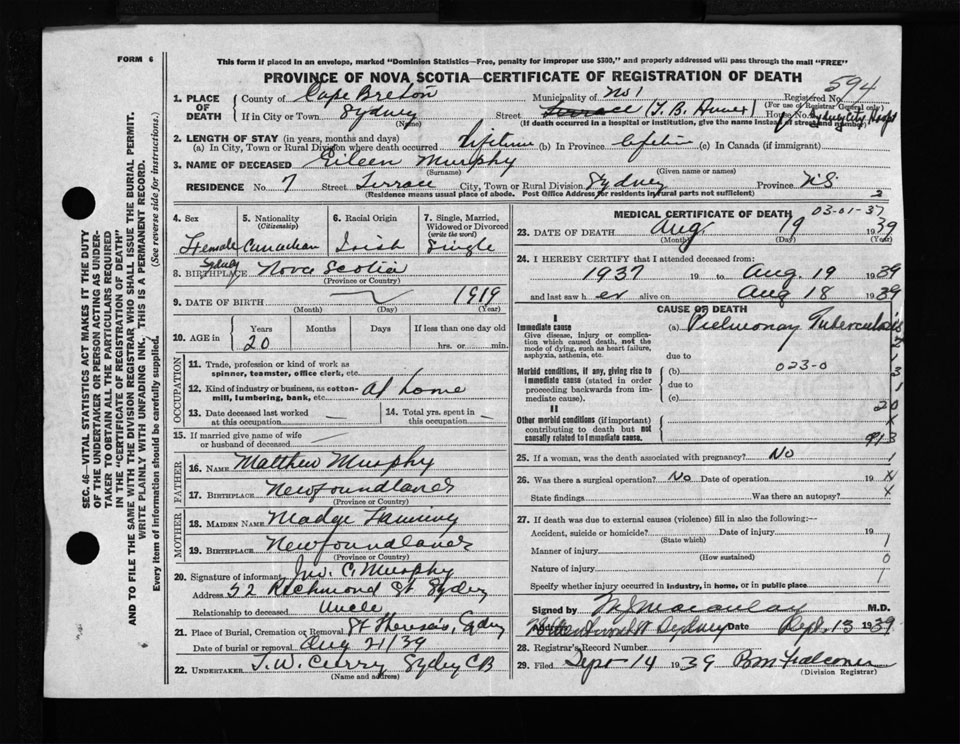 FORM 6
This form if placed in an envelope, marked "Dominion Statistics—Free, penalty for improper use $300," and properly addressed will pass through the mail "FREE"
PROVINCE OF NOVA SCOTIA—CERTIFICATE OF REGISTRATION OF DEATH
594
1. PLACE OF DEATH
County of Cape Breton Municipality of No 1 Registered No.
(For use of Registrar General only)
If in City or Town Sydney (Name) Street Terrace (T. B. Annex House No. Sydney City Hosp
(If death occurred in a hospital or institution, give the name instead of street and number)
2. LENGTH OF STAY (in years, months and days)
(a) In City, Town or Rural Division where death occurred Lifetime (b) In Province Lifetime (c) In Canada (if immigrant)
3. NAME OF DECEASED Eileen Murphy
(Surname) (Given name or names)
RESIDENCE No. 7 Street Terrace City, Town or Rural Division Sydney Province N.S.
(Residence means usual place of abode. Post Office Address for residents in rural parts not sufficient) 2
4. Sex Female
5. Nationality (Citizenship) Canadian
6. Racial Origin Irish
7. Single, Married, Widowed or Divorced (write the word) Single
8. BIRTHPLACE Sydney Nova Scotia
(Province or County)
9. DATE OF BIRTH 1919
(Month) (Day) (Year)
10. AGE in Years 20 Months Days If less than one day old
hrs. or min.
OCCUPATION
11. Trade, profession or kind of work as spinner, teamster, office clerk, etc.
12. Kind of industry or business, as cotton-mill, lumbering, bank, etc. At home
13. Date deceased last worked at this occupation
14. Total yrs. spent in this occupation
15. If married give name of wife or husband of deceased
FATHER
16. NAME Matthew Murphy
17. BIRTHPLACE Newfoundland
(Province or County)
MOTHER
18. MAIDEN NAME Madge Fanning
19. BIRTHPLACE Newfoundland
(Province or County)
20. Signature of informant Jno. C. Murphy
Address 52 Richmond St Sydney
Relationship to deceased Uncle
21. Place of Burial, Cremation or Removal St Theresas, Sydney
Date of burial or removal Aug 21/39
22. UNDERTAKER T. W. Curry Sydney CB
(Name and address)
MEDICAL CERTIFICATE OF DEATH 03-01-37
23. DATE OF DEATH Aug 19 1939
(Month) (Day) (Year)
24. I HEREBY CERTIFY that I attended deceased from:
1937 19 to Aug. 19 1939
and last saw h er alive on Aug 18 1939
CAUSE OF DEATH
I
Immediate cause
Give disease, injury or complication which caused death, not the mode of dying, such as heart failure, asphyxia, asthenia, etc.
(a) Pulmonary Tuberculosis
due to
Morbid conditions, if any, giving rise to immediate cause (stated in order proceeding backwards from immediate cause).
(b) 023-0
due to
(c)
II
Other morbid conditions (if important) contributing to death but not causally related to immediate cause.
3
1
20
x
913
25. If a woman, was the death associated with pregnancy? No 1
26. Was there a surgical operation? No Date of operation 19 x
State findings Was there an autopsy? x
27. If death was due to external causes (violence) fill in also the following:—
Accident, suicide or homicide? Date of injury 19
(State which) 1
Manner of injury 0
(How sustained)
Nature of injury 1
Specify whether injury occurred in industry, in home, or in public place
Signed by M.D.
Address Sydney Date Sept. 13 1939
28. Registrar's Record Number
29. Filed Sept 14 1939 Falconer
(Division Registrar)
SEC. 46—VITAL STATISTICS ACT MAKES IT THE DUTY
OF THE UNDERTAKER OR PERSON ACTING AS UNDER-
TAKER TO OBTAIN ALL THE PARTICULARS REQUIRED
IN THE "CERTIFICATE OF REGISTRATION OF DEATH"
AND TO FILE THE SAME WITH THE DIVISION REGISTRAR WHO SHALL ISSUE THE BURIAL PERMIT.
WRITE PLAINLY WITH UNFADING INK. THIS IS A PERMANENT RECORD.
Every item of information should be carefully supplied. (See reverse side for instructions.)